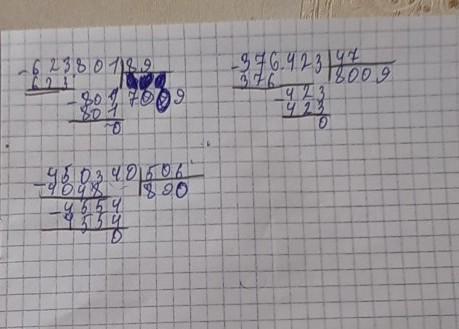 -623.801 89
623
-801 7009
801
0
-376.423 47
376 8009
-423
423
0
-450340 506
4048 890
-4554
4554
0